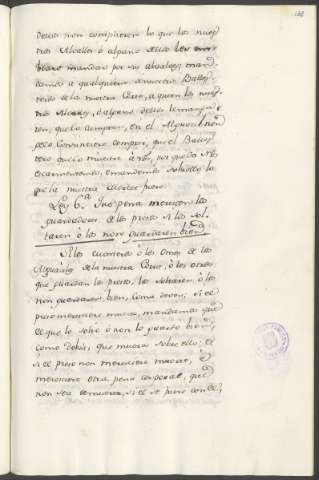 dellas non complieren lo que los nues
tros Alcalles ó alguno dellos les
mandar por su
damos a qualquier a nuestro Balles
tero de la nuestra Corte, a quien los nues
tros Alcalles, ó alguno dellos lo mandaren
que lo cumpla, en el Alguacil non
que el Balles
tero que lo muestre á Nos, por que Nos
lo escarmentemos, é mandemos sobrello lo
que la nuestra merced fuere.
Ley 6.ª Que pena merescen los
guardadores de los presos si los sol
taren ó los non guardaren bien.
Si los carceleros ó los Omes de los
Alguaciles de la nuestra Corte, ó los otros
que guardan los presos, los soltaren ó los
non guardaren bien, como deven, si el
preso mereciere muerte, mandamos que
el que le soltó ó non lo guardó bien,
como debia, que muera sobre ello, et
si el preso non mereciere muerte, é
mereciere otra pena corporal, que
non sea de muerte, si el preso